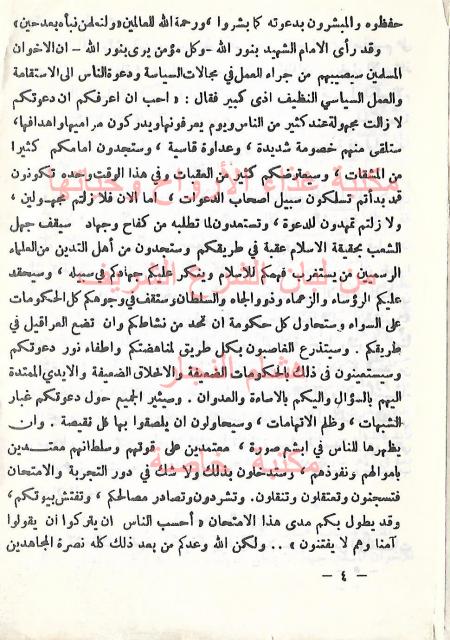 حفظوه والمبشرون بدعوته كما بشروا ، ورحمة الله للعالمين « ولتعلمن نبأه بعد حين »
وقد رأى الامام الشهيد بنور الله – وكل مؤمن يرى بنور الله – ان الاخوان
المسلمين سيصيبهم من جراء العمل في مجالات السياسة ودعوة الناس الى الاستقامة
والعمل السياسي النظيف اذى كبير فقال : « احب ان اعرفكم ان دعوتكم
لا زالت مجهولة عند كثير من الناس ويوم يعرفونها ويدركون مراميها واهدافها ،
ستلقى منهم خصومة شديدة ، وعداوة قاسية ، وستجدون امامكم كثيرا
من المشقات ، وسيعترضكم كثير من العقبات وفي هذا الوقت وحده تكونون
قد بدأتم تسلكون سبيل اصحاب الدعوات ، أما الان فلا زلتم مجهولين ،
ولا زلتم تمهدون للدعوة ، وتستعدون لما تطلبه من كفاح وجهاد سيقف جهل
الشعب بحقيقة الاسلام عقبة في طريقكم وستجدون من أهل التدين من العلماء
الرسميين من يستغرب فهمكم للاسلام وينكر عليكم جهادكم في سبيله ، وسيحقد
عليكم الرؤساء والزعماء وذوو الجاه والسلطان وستقف في وجوهكم كل الحكومات
على السواء وستحاول كل حكومة ان تحد من نشاطكم وان تضع العراقيل في
طريقكم . وسيتذرع الغاصبون بكل طريق لمناهضتكم واطفاء نور دعوتكم
وسيستعينون في ذلك بالحكومات الضعيفة والاخلاق الضعيفة والايدي الممتدة
اليهم بالسؤال واليكم بالاساءة والعدوان . وسيثير الجميع حول دعوتكم غبار
الشبهات ، وظلم الاتهامات ، وسيحاولون ان يلصقوا بها كل نقيصة . وان
يظهرها للناس في ابشع صورة ، معتمدين على قوتهم وسلطانهم معتدين
باموالهم ونفوذهم ، وستدخلون بذلك ولا شك في دور التجربة والامتحان
فتسجنون وتعتقلون وتنقلون . وتشردون وتصادر مصالحكم ، وتفتش بيوتكم ،
وقد يطول بكم مدى هذا الامتحان « أحسب الناس ان يتركوا ان يقولوا
آمنا وهم لا يفتنون » .. ولكن الله وعدكم من بعد ذلك كله نصرة المجاهدين
– ٤ –
مكتبة غذاء الأرواح وحياتها
من لبان الشرع الشريف
مكتبة خاصة